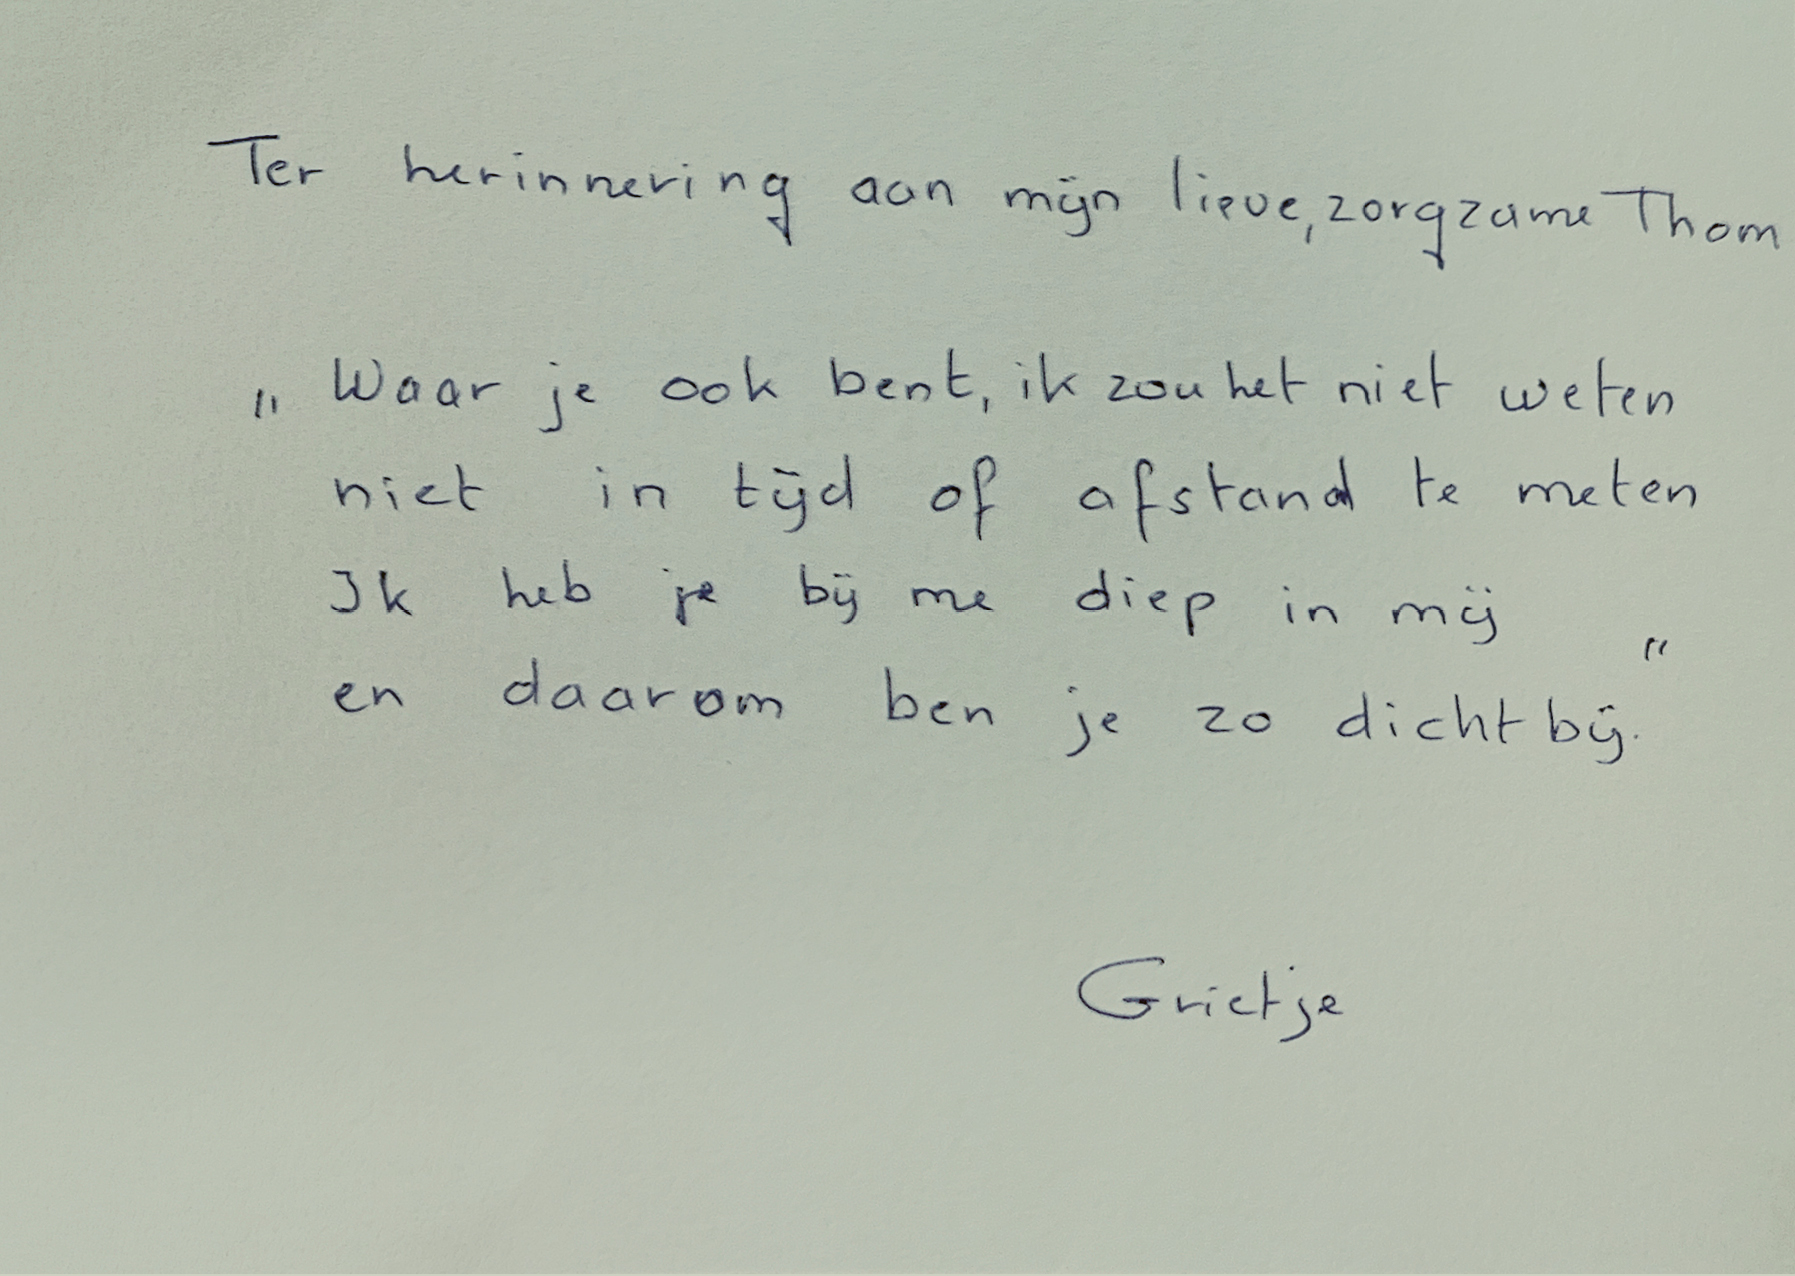 Ter herinnering aan mijn lieve, zorgzame Thom
„ Waar je ook bent, ik zou het niet weten
niet in tijd of afstand te meten
Ik heb je bij me diep in mij
en daarom ben je zo dichtbij. "
Grietje